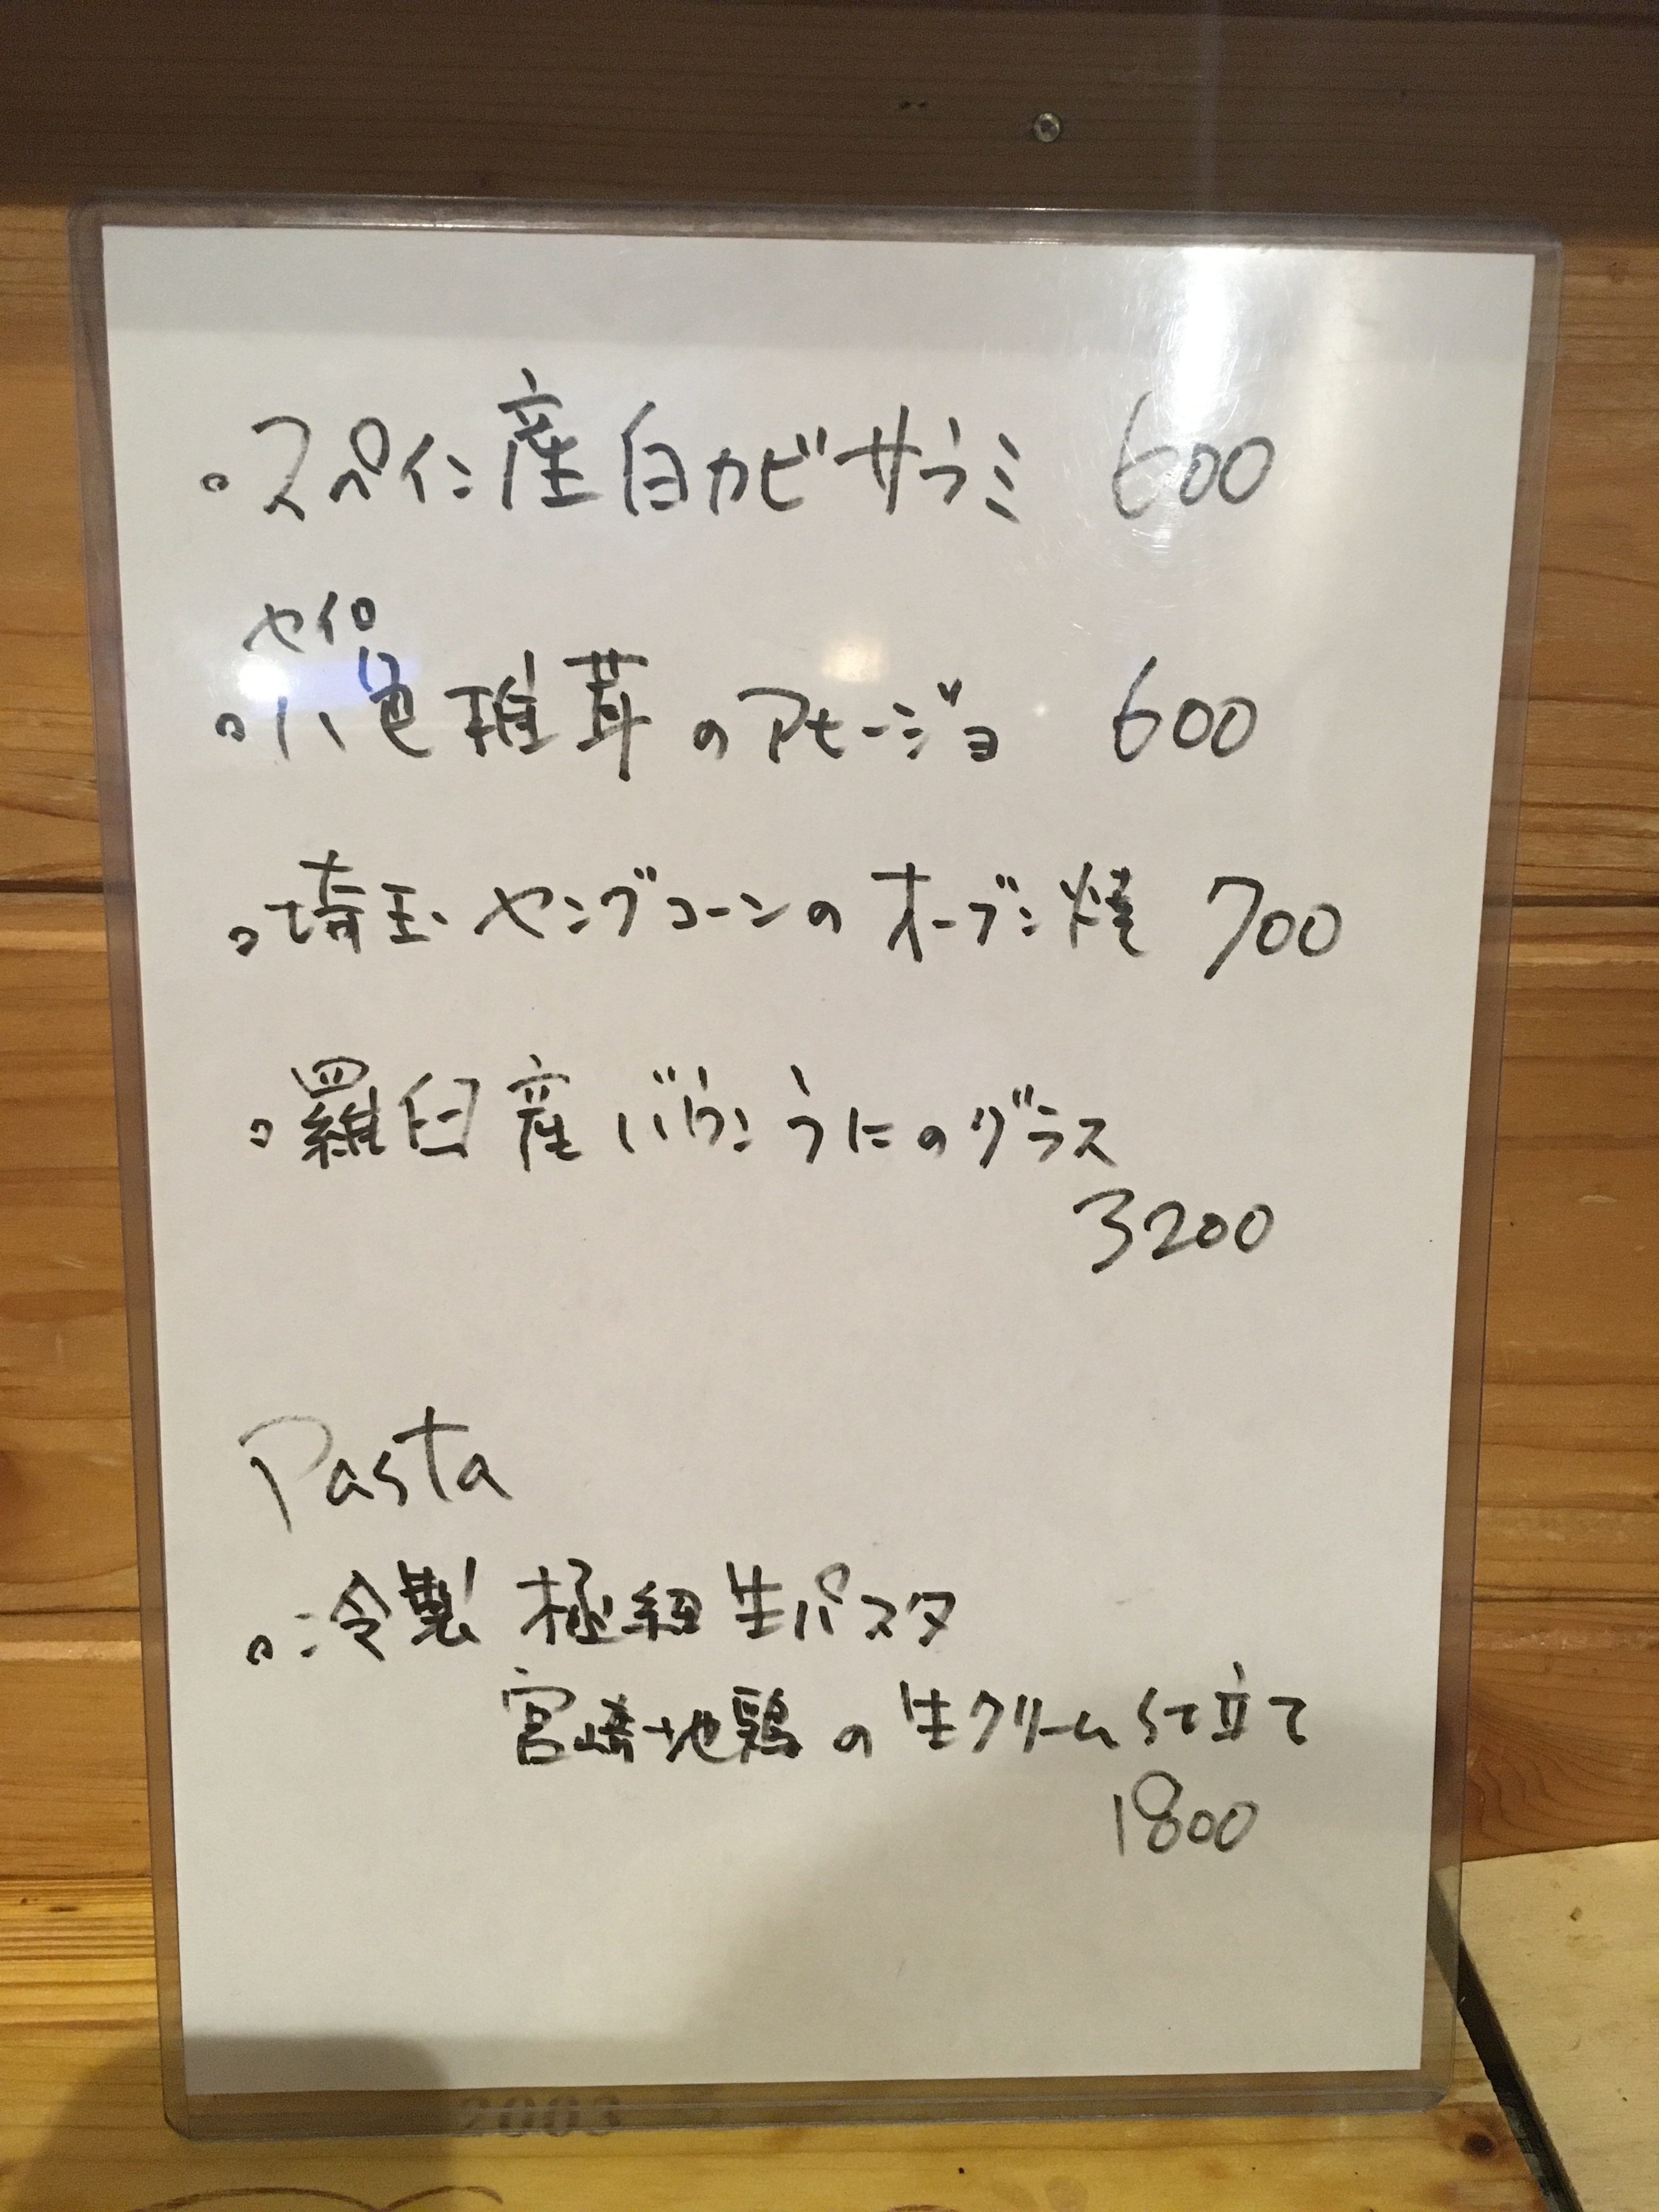 。スペイン産白カビサラミ 600
ヤイロ
。八色椎茸のアヒージョ 600
。埼玉ヤングコーンのオーブン焼 700
。羅臼産バフンうにのグラス
3200
Pasta
。冷製 極細生パスタ
宮崎地鶏の生クリーム仕立て
1800
2003